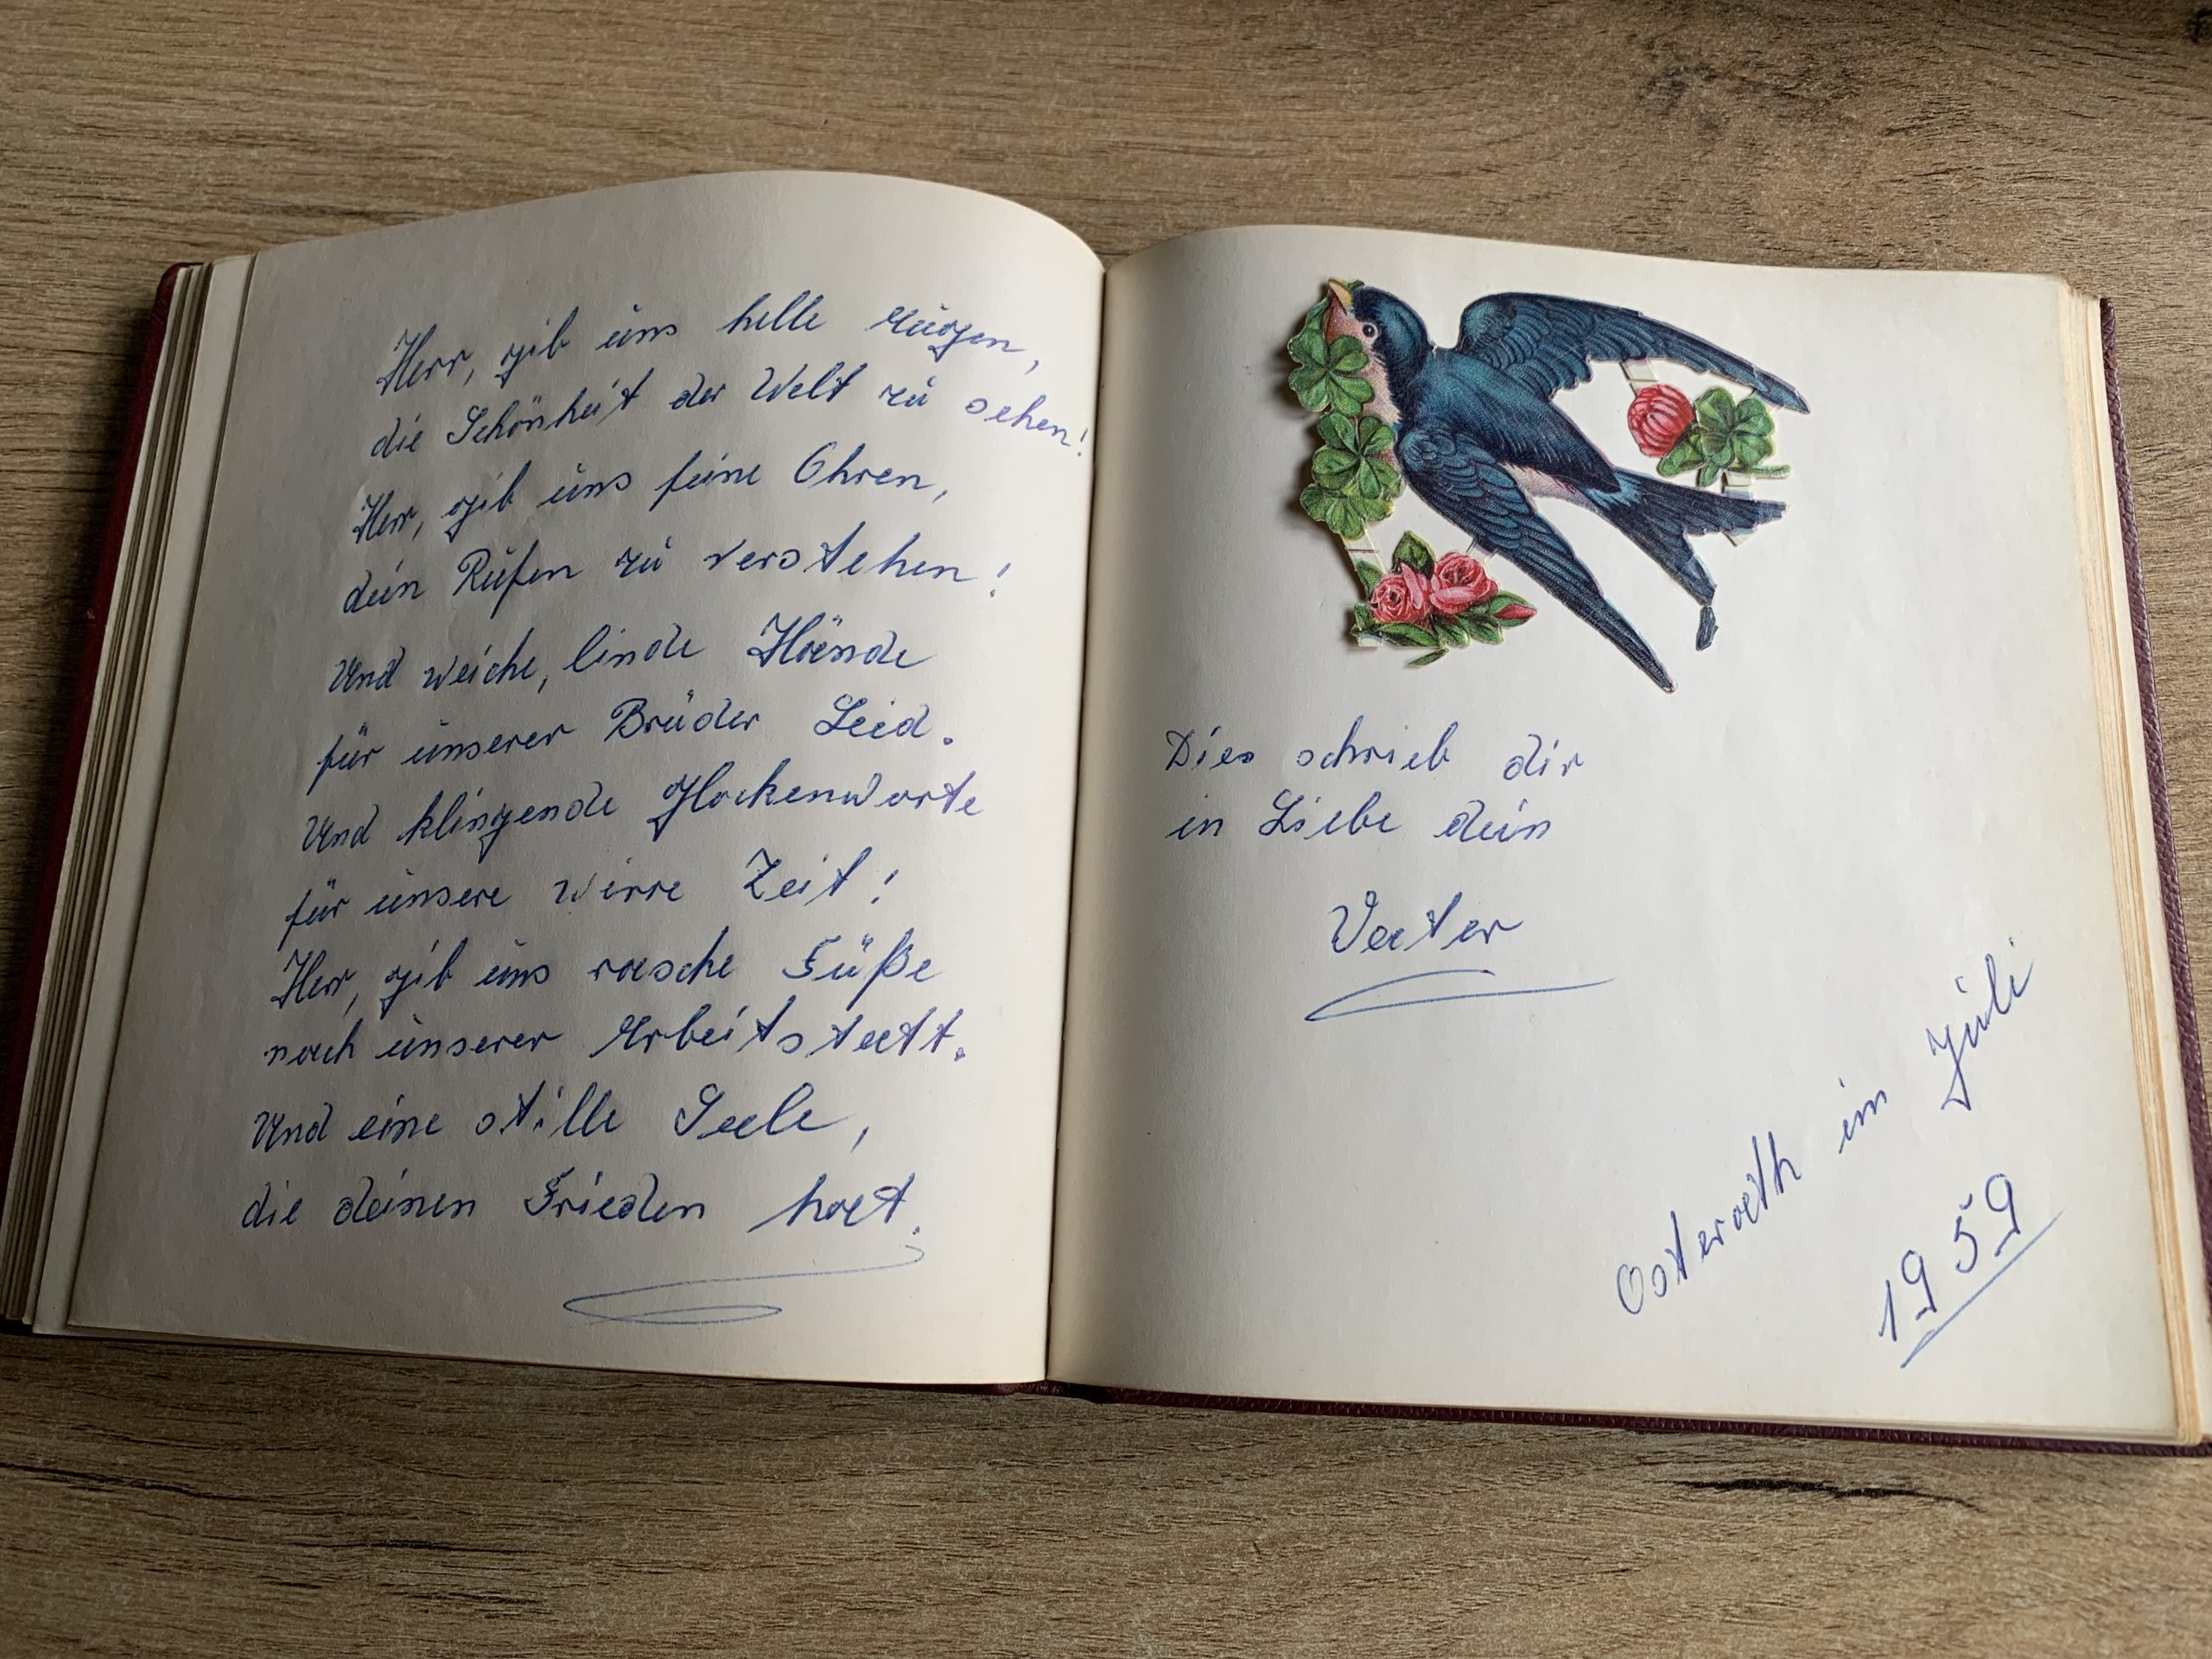 Herr, gib uns helle Augen,
die Schönheit der Welt zu sehen!
Herr, gib uns feine Ohren,
dein Rufen zu verstehen!
Und weiche, linde Hände
für unserer Brüder Leid.
Und klingende Glockenworte
für unsere wirre Zeit!
Herr, gib uns rasche Füße
nach unserer Arbeitstatt.
Und eine stille Seele,
die deinen Frieden hat.
Dies schrieb dir
in Liebe dein
Vater
Osterath im Juli
1959